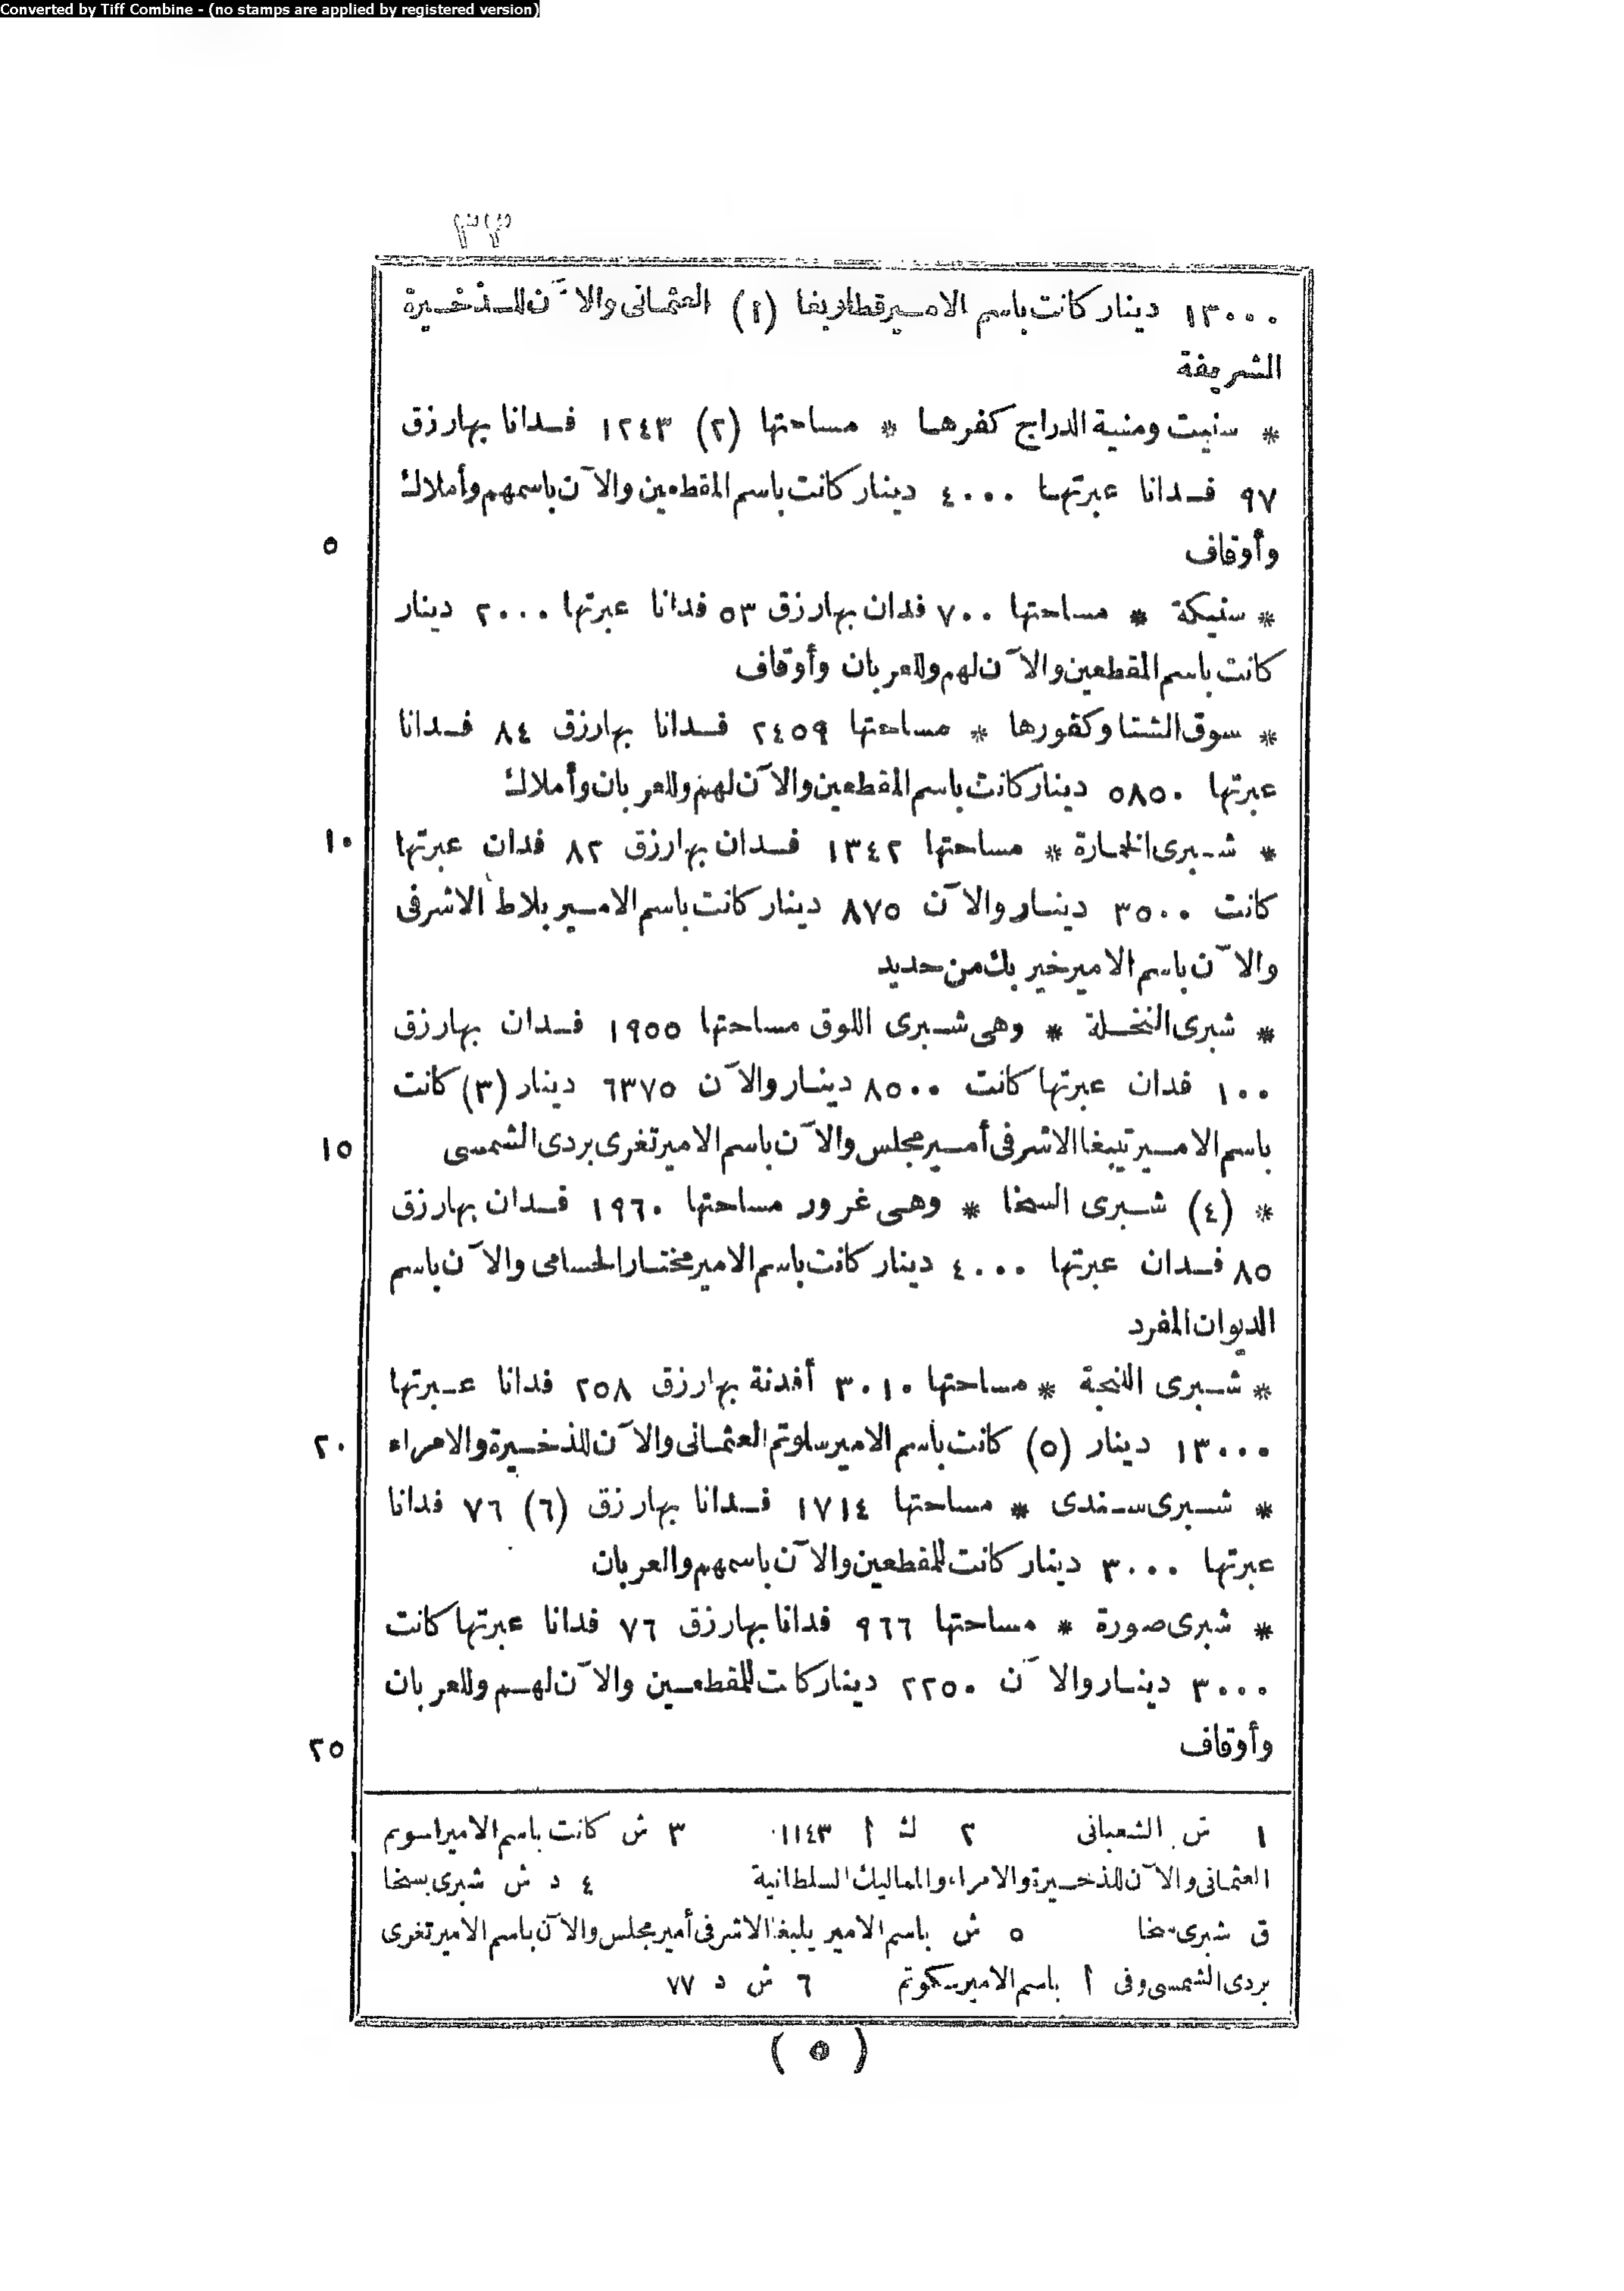 Converted by Tiff Combine - (no stamps are applied by registered version)
٣٣
١٣٠٠٠ دينار كانت باسم الامير قطلوبغا (١) العثمانى والآن للذخيرة
الشريفة
* سنيت ومنية الدراج كفرهما * مساحتها (٢) ١٢٤٣ فدانا بها رزق
٩٧ فدانا عبرتها ٤٠٠٠ دينار كانت باسم المقطعين والآن باسمهم وأملاك
وأوقاف
٥
* سنيكة * مساحتها ٧٠٠ فدان بها رزق ٥٣ فدانا عبرتها ٢٠٠٠ دينار
كانت باسم المقطعين والآن لهم وللعربان وأوقاف
* سوق الشتا وكفورها * مساحتها ٢٤٥٩ فدانا بها رزق ٨٤ فدانا
عبرتها ٥٨٥٠ دينار كانت باسم المقطعين والآن لهم وللعربان وأملاك
* شبرى الخمارة * مساحتها ١٣٤٢ فدان بها رزق ٨٢ فدان عبرتها
١٠
كانت ٣٥٠٠ دينار والآن ٨٧٥ دينار كانت باسم الامير بلاط الاشرفى
والآن باسم الامير خير بك من حديد
* شبرى النخلة * وهى شبرى اللوق مساحتها ١٩٥٥ فدان بها رزق
١٠٠ فدان عبرتها كانت ٨٥٠٠ دينار والآن ٦٣٧٥ دينار (٣) كانت
باسم الامير تيبغا الاشرفى أمير مجلس والآن باسم الامير تغرى بردى الشمسى
١٥
* (٤) شبرى السخا * وهى غرور مساحتها ١٩٦٠ فدان بها رزق
٨٥ فدان عبرتها ٤٠٠٠ دينار كانت باسم الامير مختار الحسامى والآن باسم
الديوان المفرد
* شبرى النجة * مساحتها ٣٠١٠ أفدنة بها رزق ٢٥٨ فدانا عبرتها
١٣٠٠٠ دينار (٥) كانت باسم الامير سلوتم العثمانى والآن للذخيرة والامراء
٢٠
* شبرى سندى * مساحتها ١٧١٤ فدانا بها رزق (٦) ٧٦ فدانا
عبرتها ٣٠٠٠ دينار كانت للمقطعين والآن باسمهم والعربان
* شبرى صورة * مساحتها ٩٦٦ فدانا بها رزق ٧٦ فدانا عبرتها كانت
٣٠٠٠ دينار والآن ٢٢٥٠ دينار كانت للمقطعين والآن لهم وللعربان
وأوقاف
٢٥
١ ش الشعبانى ٢ ك أ ١١٤٣ ٣ ش كانت باسم الامير اسوتم
العثمانى والآن للذخيرة والامراء والماليك السلطانية ٤ د ش شبرى بسخا
ق شبرى سخا ٥ ش باسم الامير يلبغا الاشرفى أمير مجلس والآن باسم الامير تغرى
بردى الشمسى وفى أ باسم الامير سكوتم ٦ ش د ٧٧
(٥)